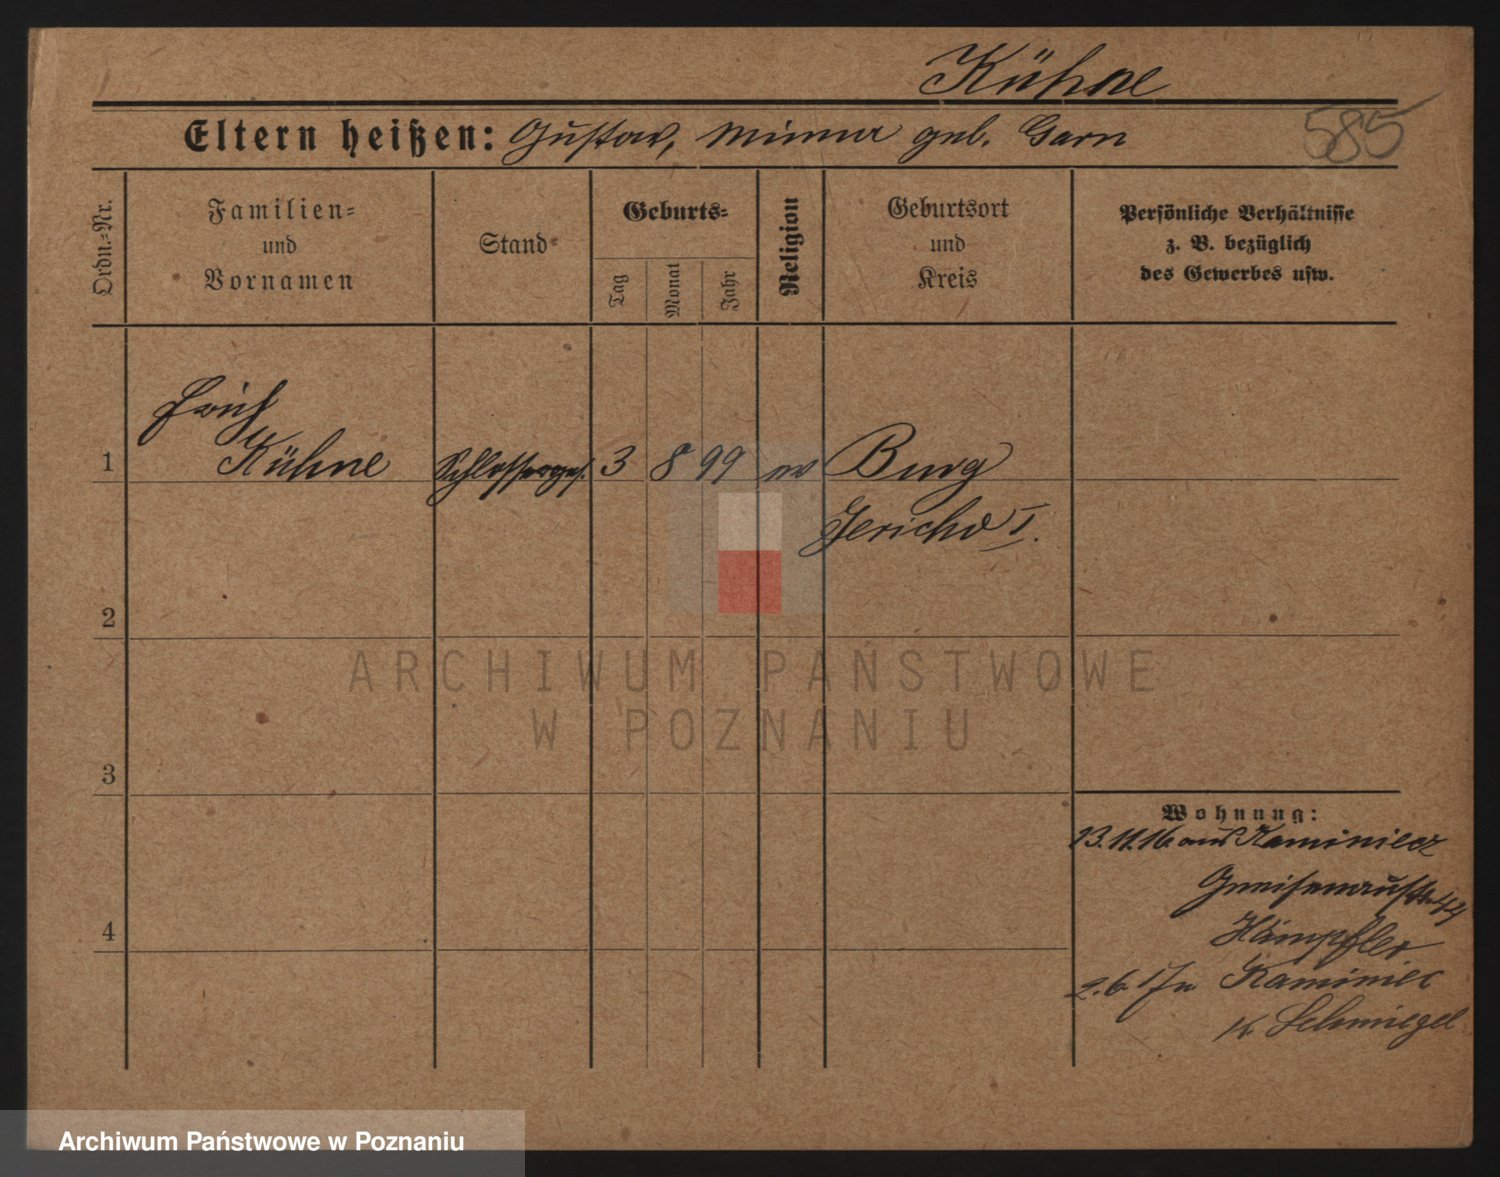 Kühne
Eltern heißen: Gustav, Minna geb. Garn
585
Ordn.-Nr.
Familien-
und
Vornamen
Stand
Geburts-
Tag
Monat
Jahr
Religion
Geburtsort
und
Kreis
Persönliche Verhältnisse
z. B. bezüglich
des Gewerbes usw.
Erich
1 Kühne Schlosserges. 3 8 99 ev Burg
Jericho I.
2
ARCHIWUM PAŃSTWOWE
W POZNANIU
3
Wohnung:
23.11.16 aus Kaminiec
Gneisenaustr. 44
4
Hämpfler
2.6.17 n Kaminiec
Kr. Schmiegel
Archiwum Państwowe w Poznaniu